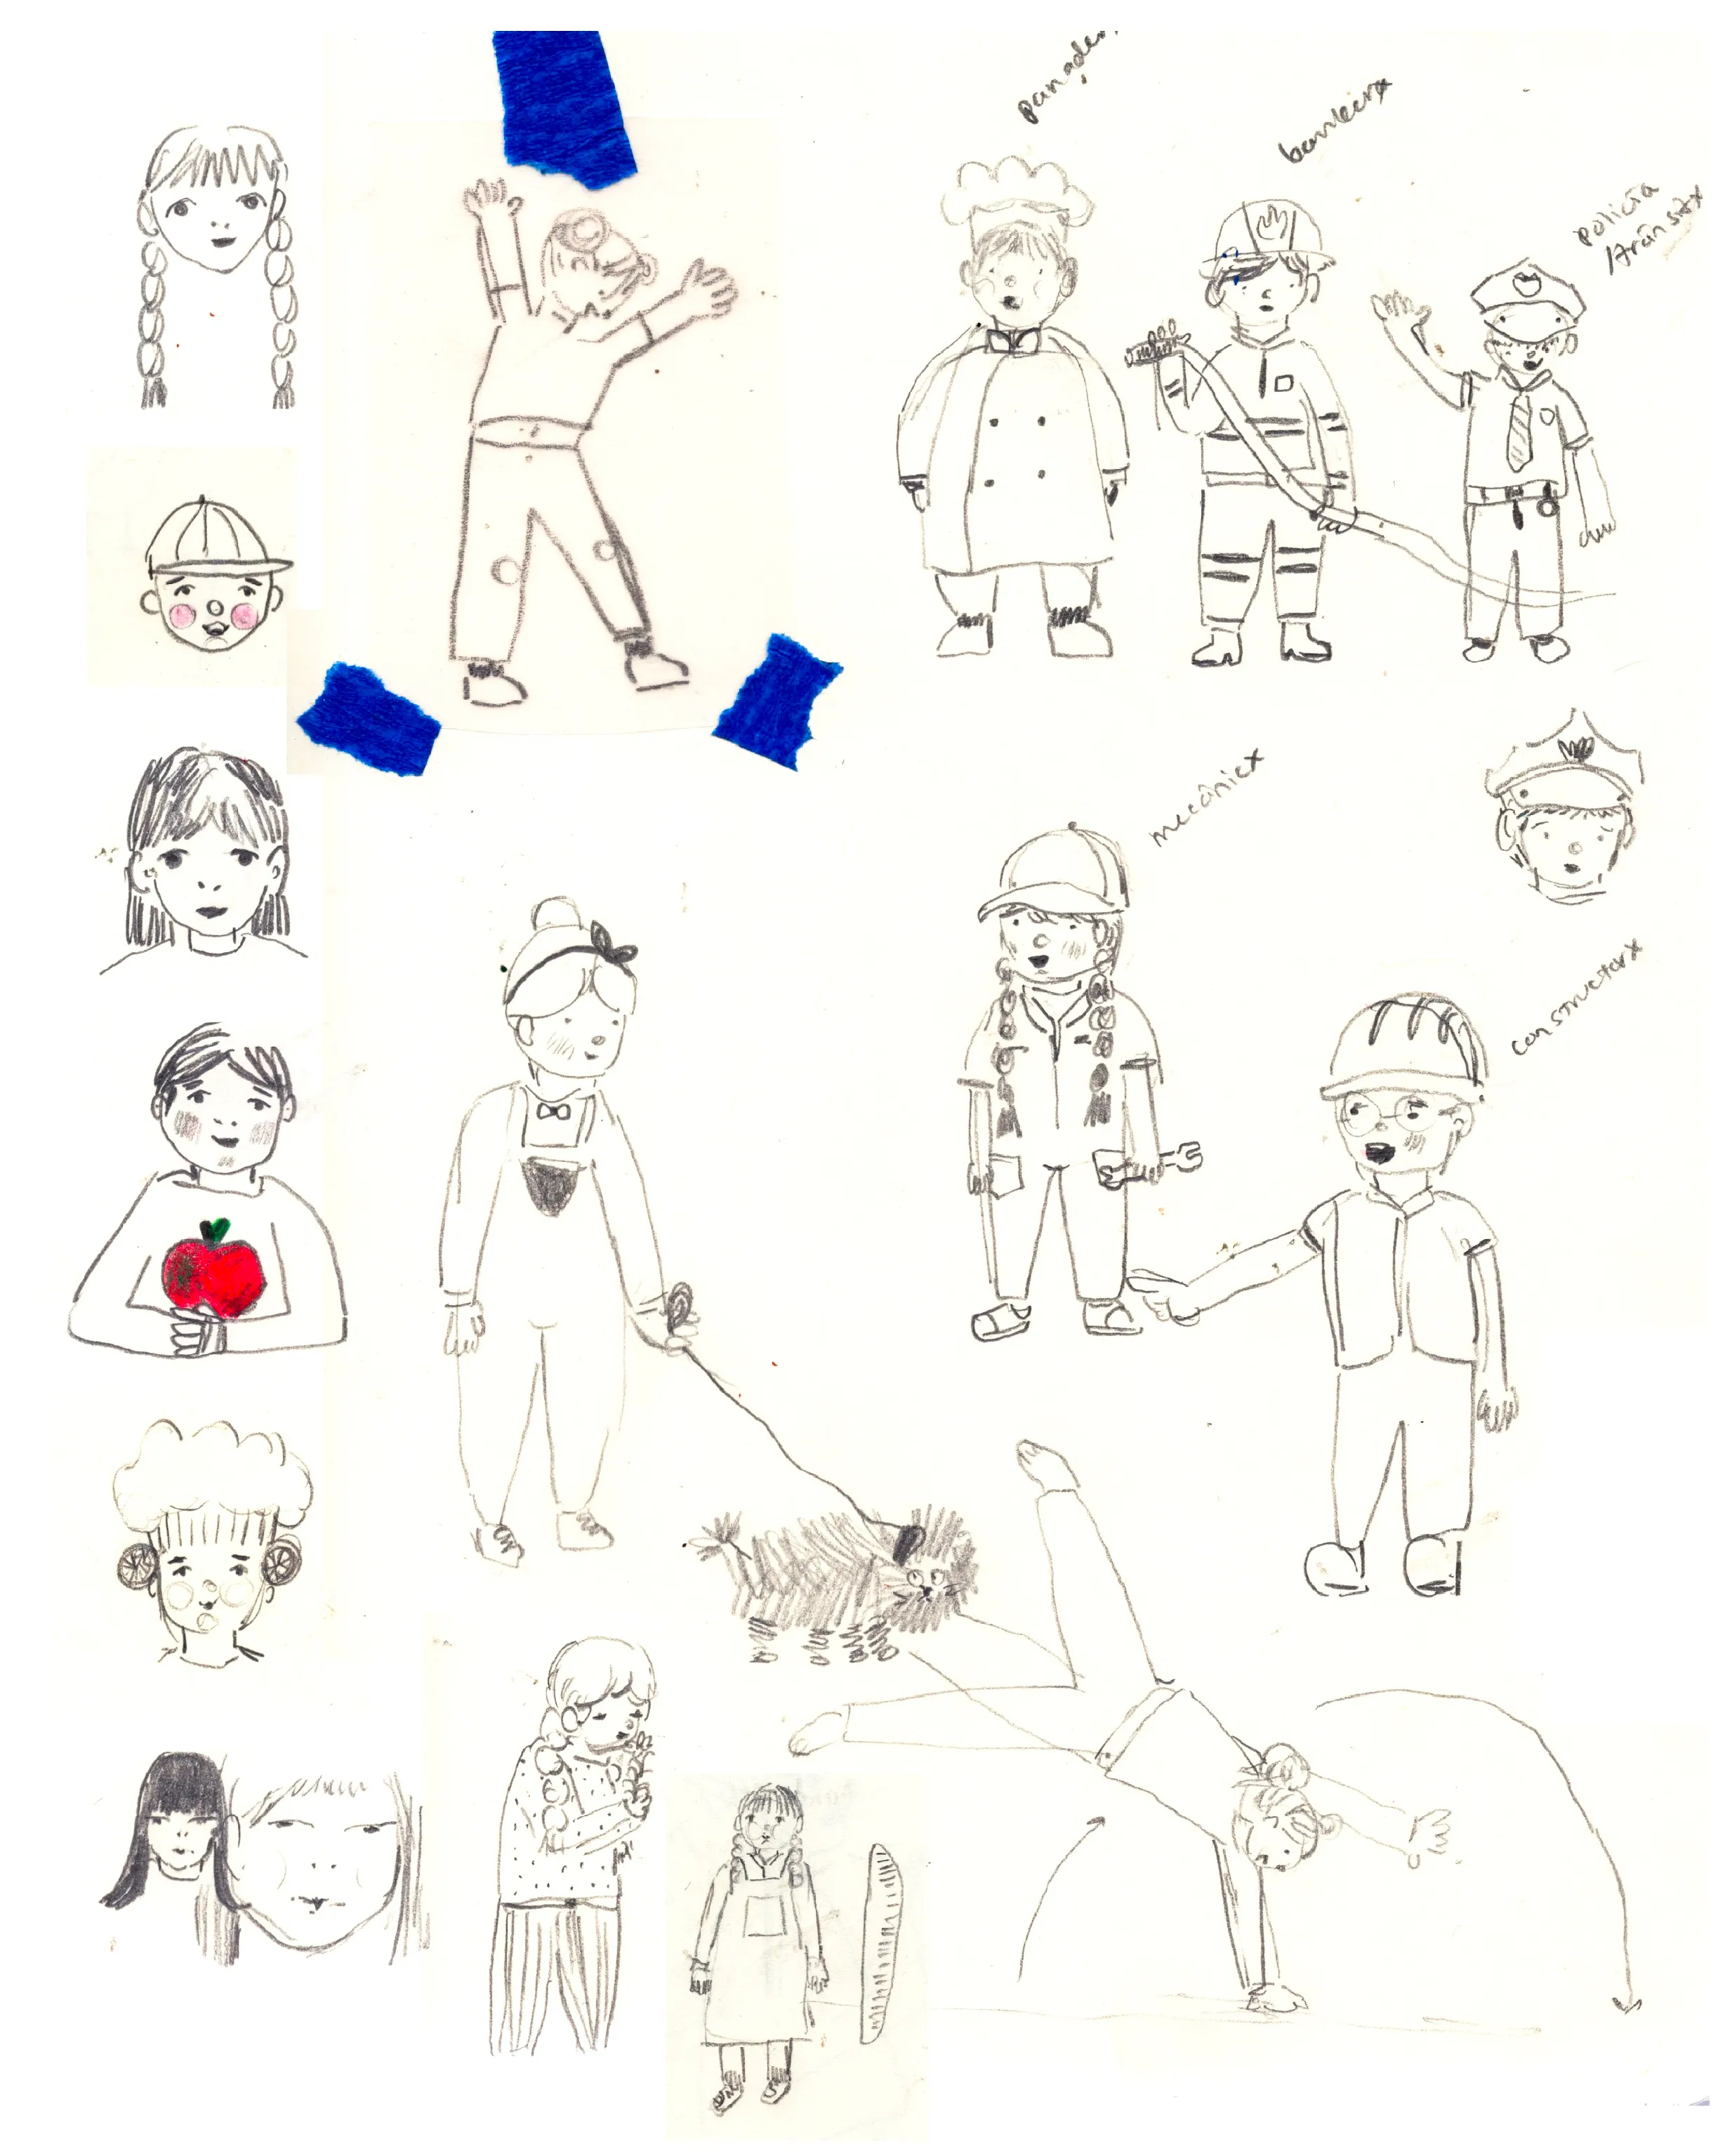 panader
bombeirx
policía
/trânsitx
mecânicx
constructorx